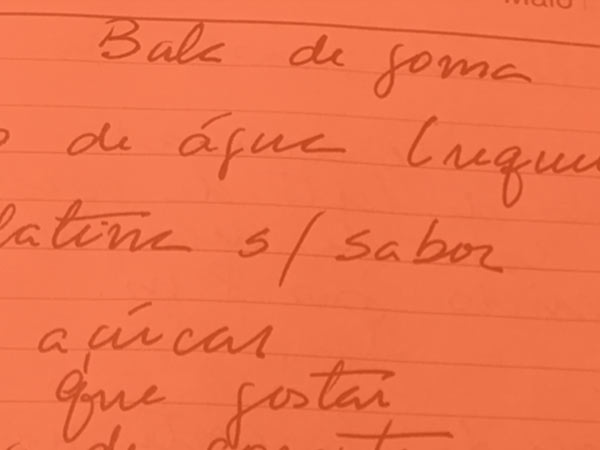 Maio
Bala de goma
de água (requei
latina s/ sabor
açúcar
que gostar
de